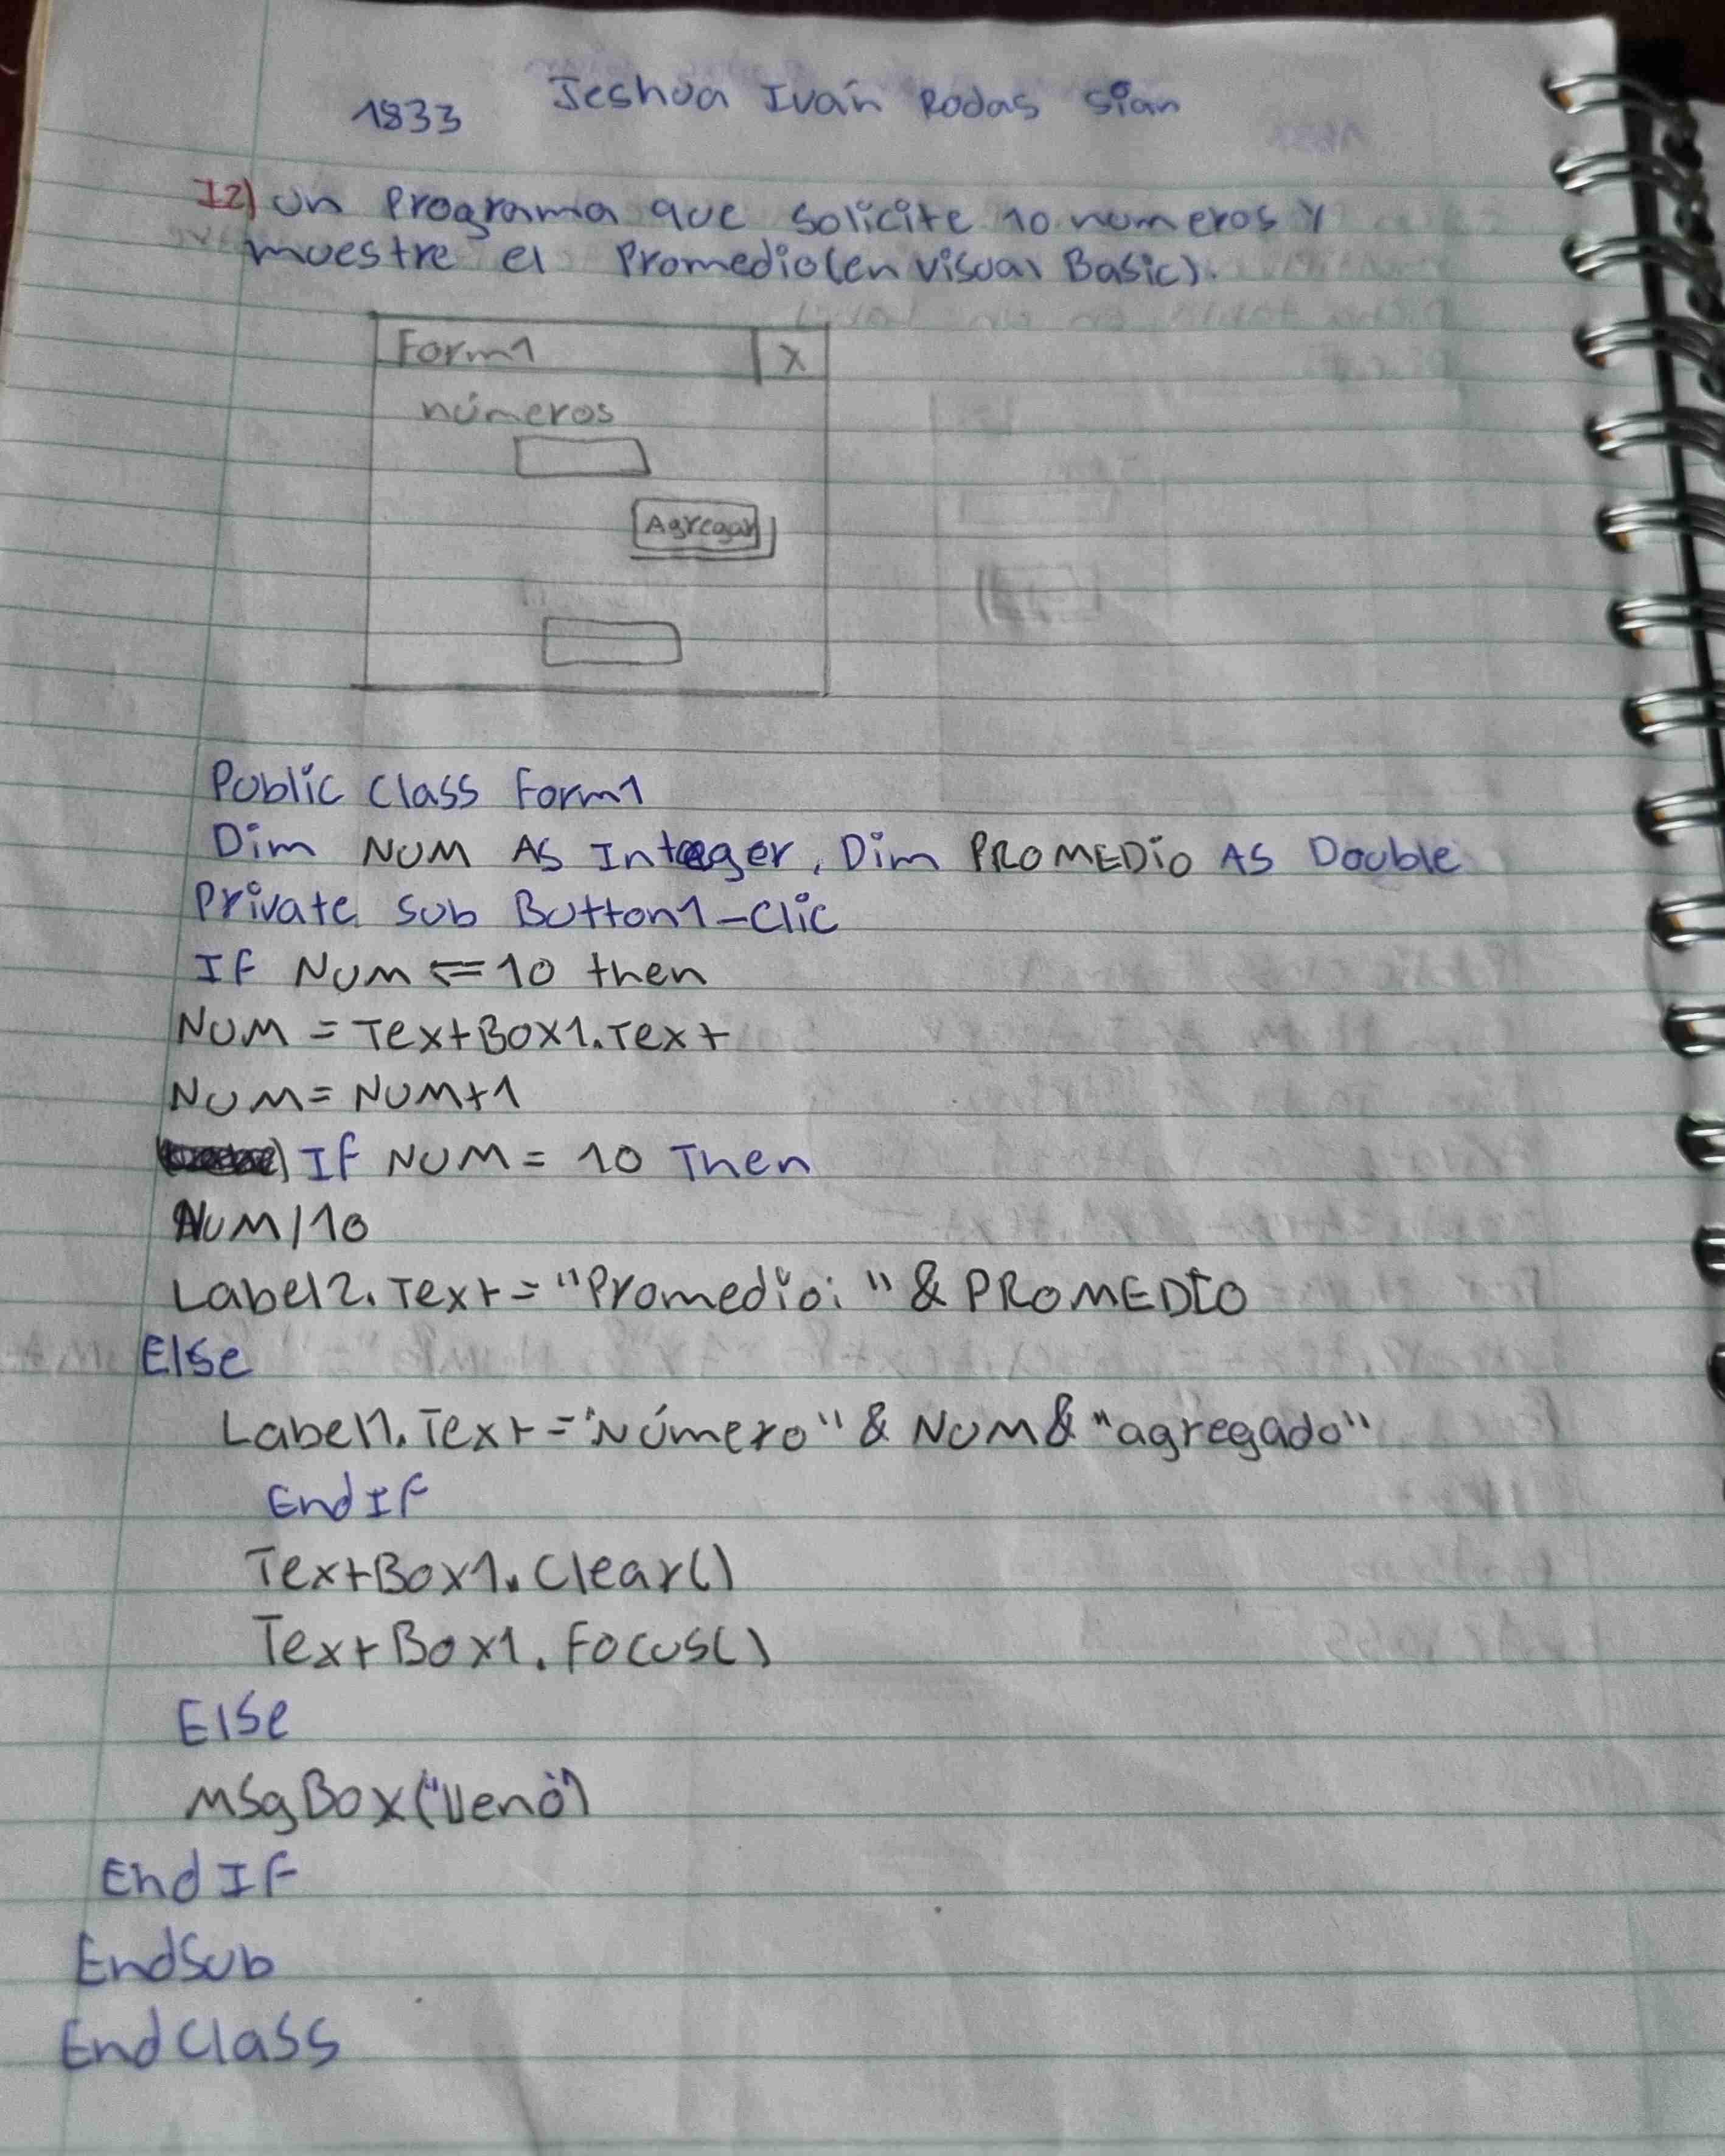 1833 Jeshua Iván Rodas Sian
I2) Un Programa que solicite 10 numeros y
muestre el Promedio(en Visual Basic).
Form1 X
números
Agregar
Public Class Form1
Dim NUM As Integer, Dim PROMEDIO AS Double
Private Sub Button1-Clic
If NUM <=10 then
NUM = TextBox1.Text
NUM= NUM+1
If NUM = 10 Then
NUM/10
Label2.Text="Promedio: " & PROMEDIO
Else
Label1.Text="Número" & NUM & "agregado"
End IF
TextBox1.Clear()
TextBox1.Focus()
Else
MsgBox("lleno")
End IF
EndSub
End Class